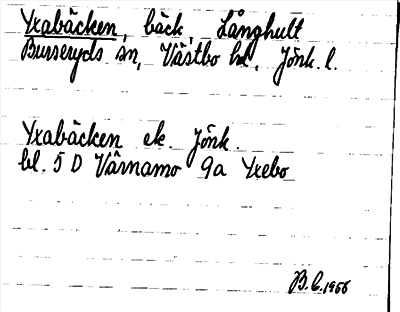 Yxabäcken, bäck, Långhult
Burseryds sn, Västbo hd, Jönk. l.
Yxabäcken ek. Jönk.
bl. 5 D Värnamo 9a Yxebo
B.C. 1966